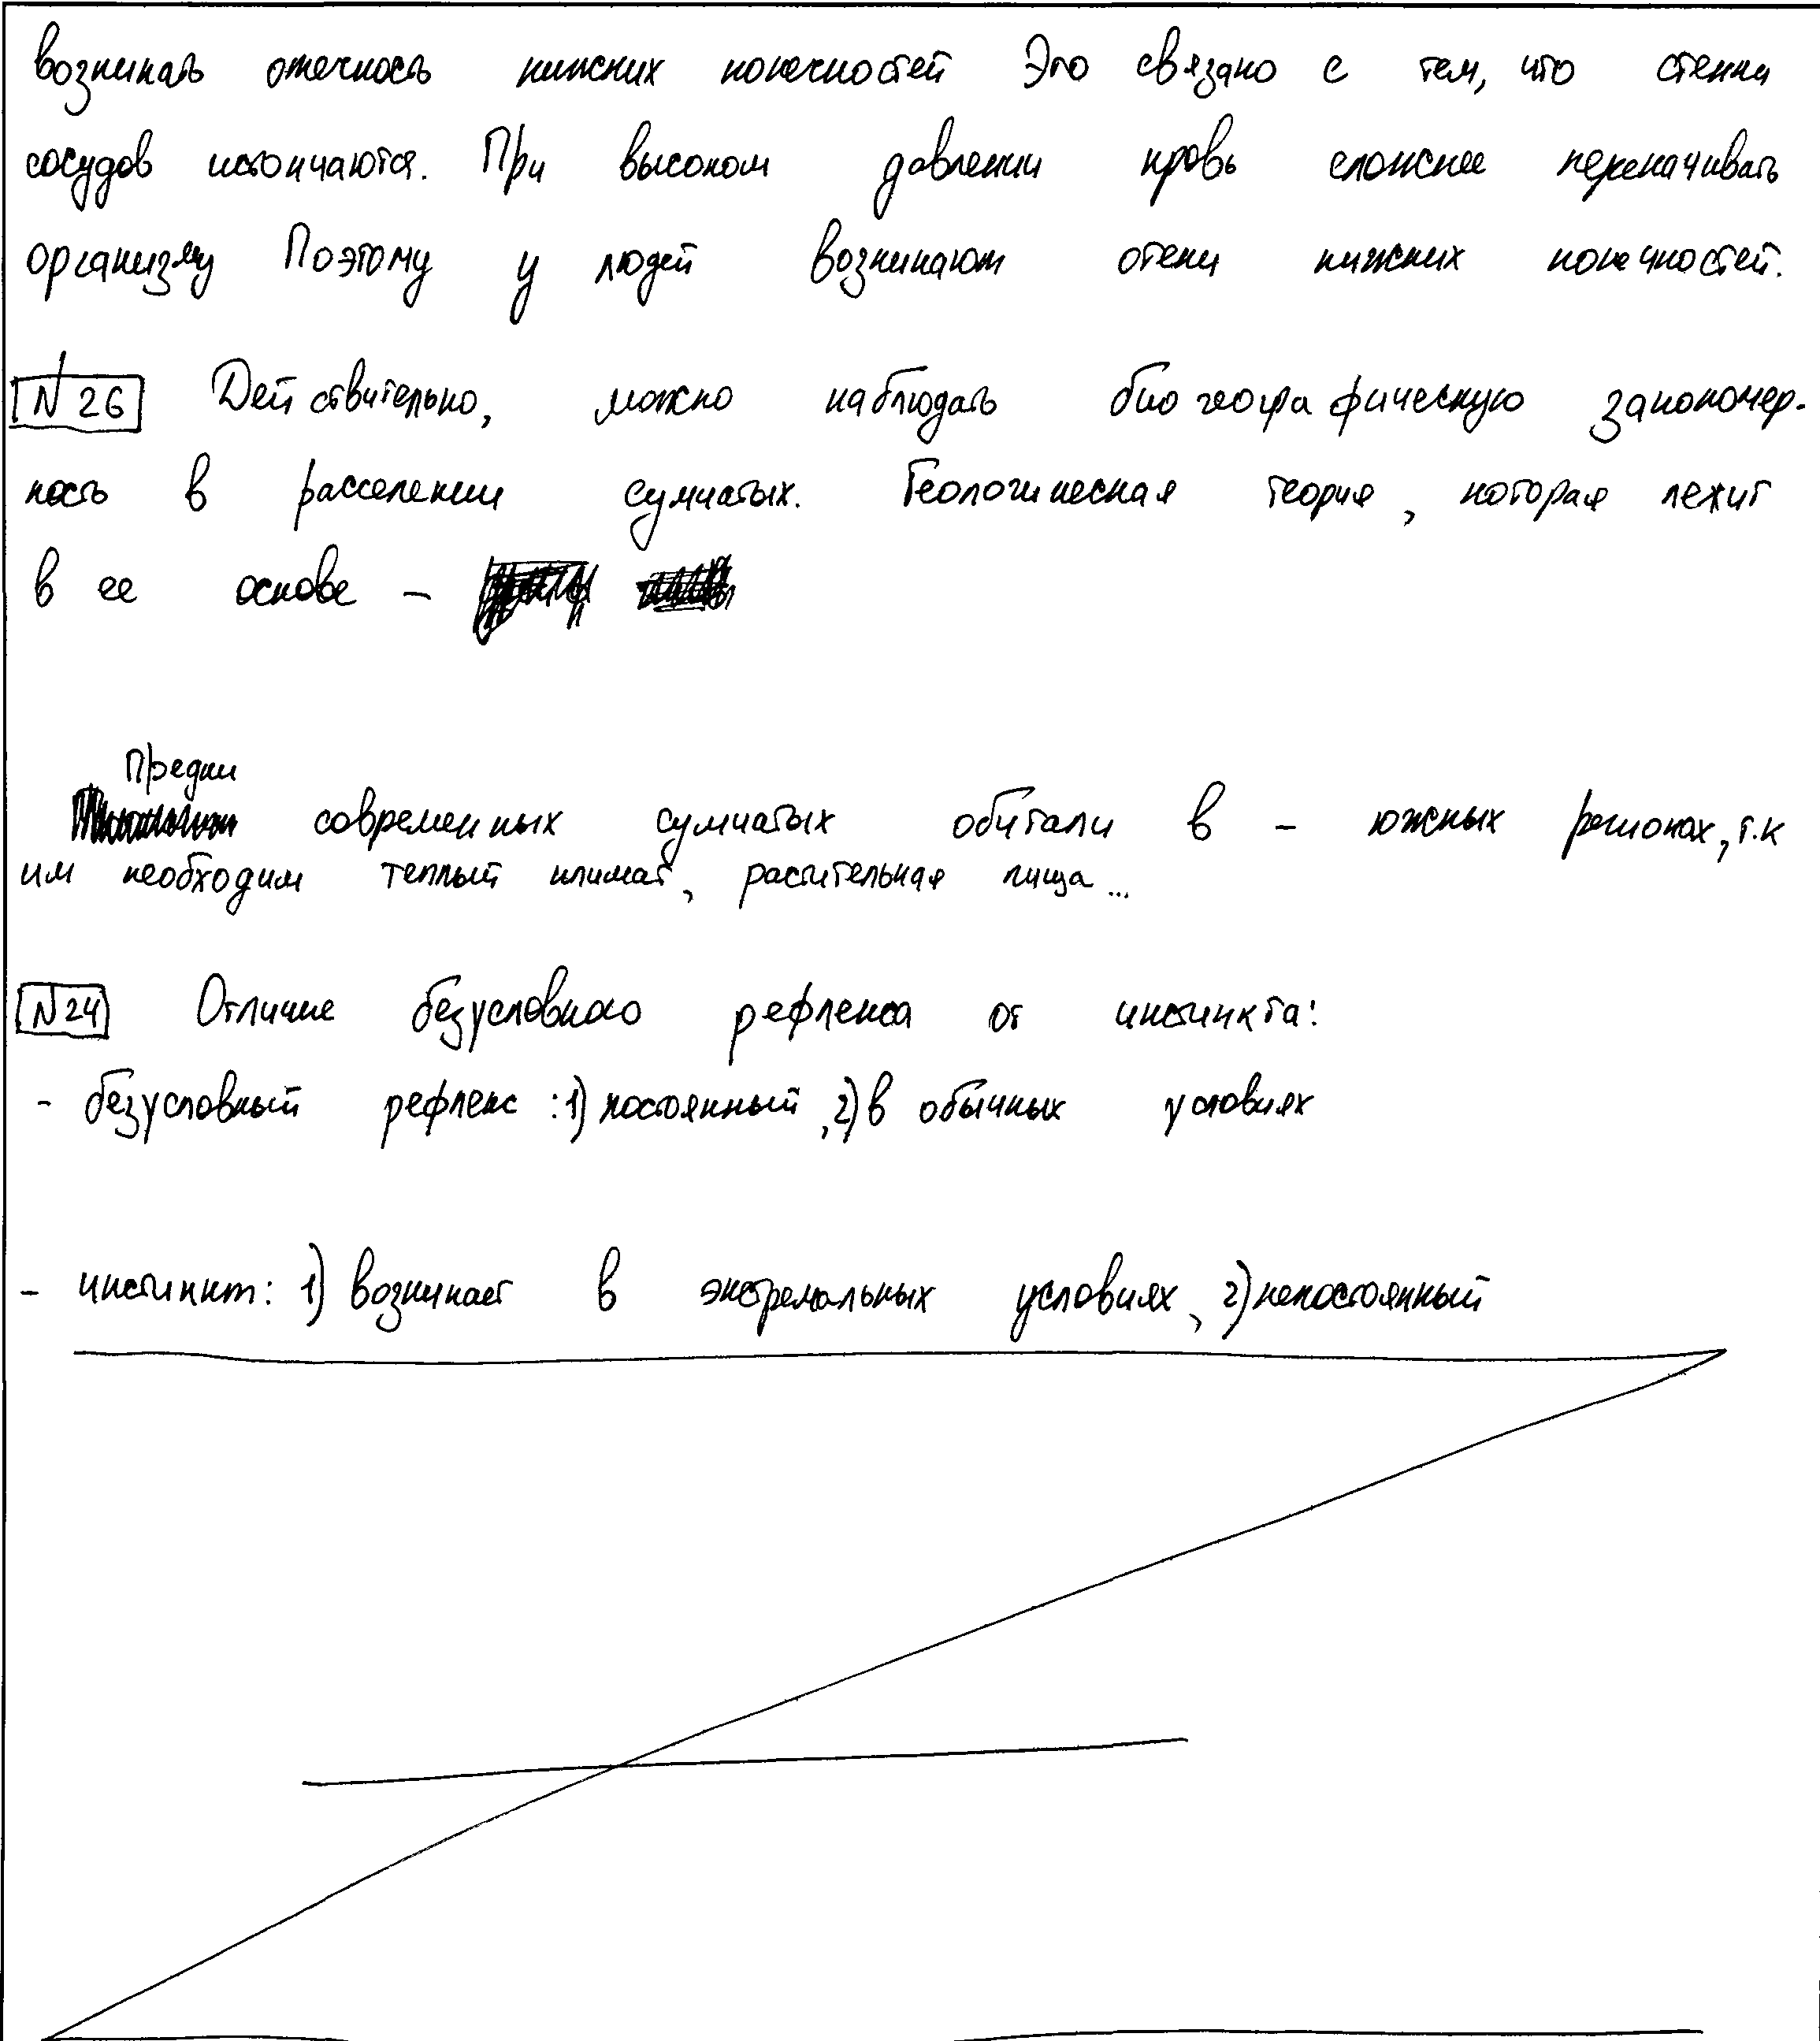 возникать отечность нижних конечностей Это связано с тем, что стенки
сосудов истончаются. При высоком давлении кровь сложнее перекачивать
организму Поэтому у людей возникают отеки нижних конечностей.
N 26 Действительно, можно наблюдать биогеографическую закономер-
ность в расселении сумчатых. Геологическая теория, которая лежит
в ее основе -
Предки
современных сумчатых обитали в - южных регионах, т.к
им необходим теплый климат, растительная пища...
N 24 Отличие безусловного рефлекса от инстинкта:
- безусловный рефлекс: 1) постоянный, 2) в обычных условиях
- инстинкт: 1) возникает в экстремальных условиях, 2) непостоянный